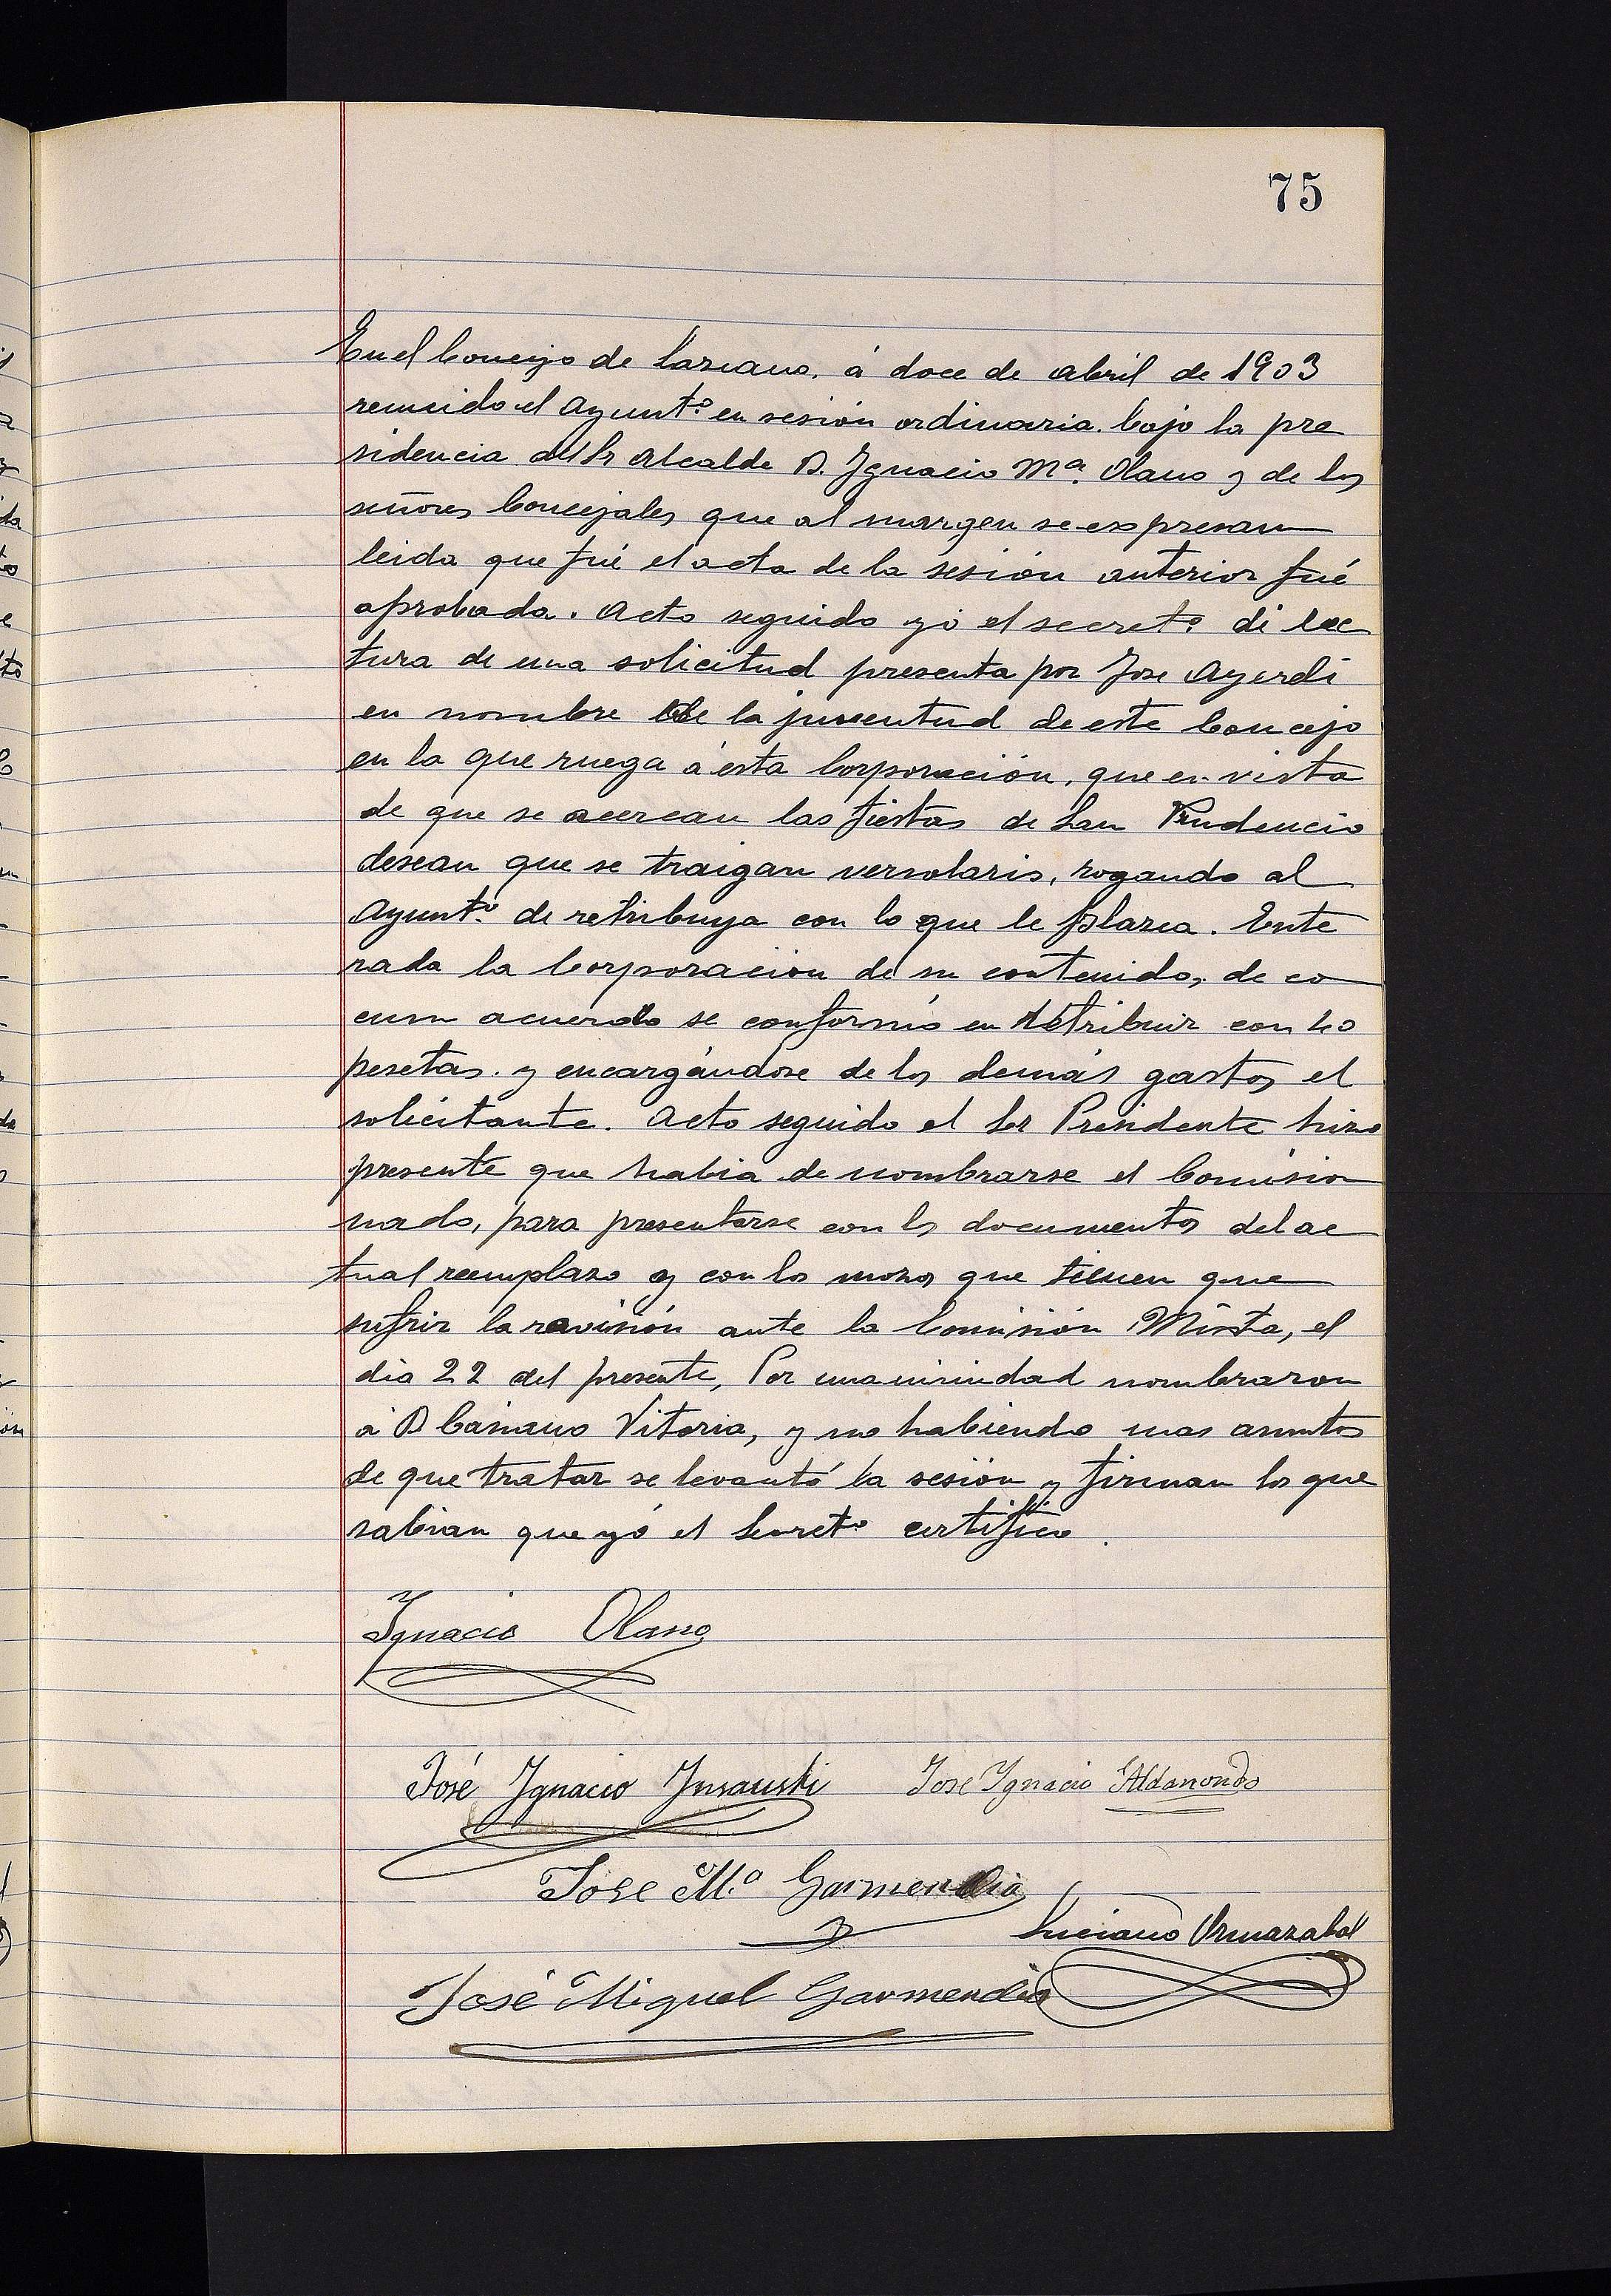 75
En el Concejo de Lazcano, á doce de abril de 1903
reunido el Ayuntº en sesión ordinaria bajo la pre
sidencia del Sr Alcalde D. Ignacio Mª Olano y de los
señores Concejales que al margen se expresan
leida que fué el acta de la sesión anterior fué
aprobada. Acto seguido yó el secretº dí lec
tura de una solicitud presenta por Jose Ayerdi
en nombre de la juventud de este Concejo
en la que ruega á esta Corporación, que en vista
de que se acercan las fiestas de San Prudencio
desean que se traigan versolaris, rogando al
Ayuntº de retribuya con lo que le plazca. Ente
rada la Corporación de su contenido, de co
cum acuerdo se conformó en retribuir con
pesetas. y encargándose de los demás gastos el
solicitante. Acto seguido el Sr Presidente hizo
presente que habia de nombrarse el Comisio
nado, para presentarse con los documentos del ac
tual reemplazo y con los mozos que tienen que
sufrir la revisión ante la Comisión Mixta, el
dia 22 del presente, Por unanimidad nombraron
á D Casiano Vitoria, y no habiendo mas asuntos
de que tratar se levantó la sesión y firman los que
sabian que yó el Secretº certifico.
Ignacio Olano
José Ignacio Insausti Jose Ignacio Aldanondo
Jose Mª Garmendia
Luciano Urmazabal
José Miguel Garmendia